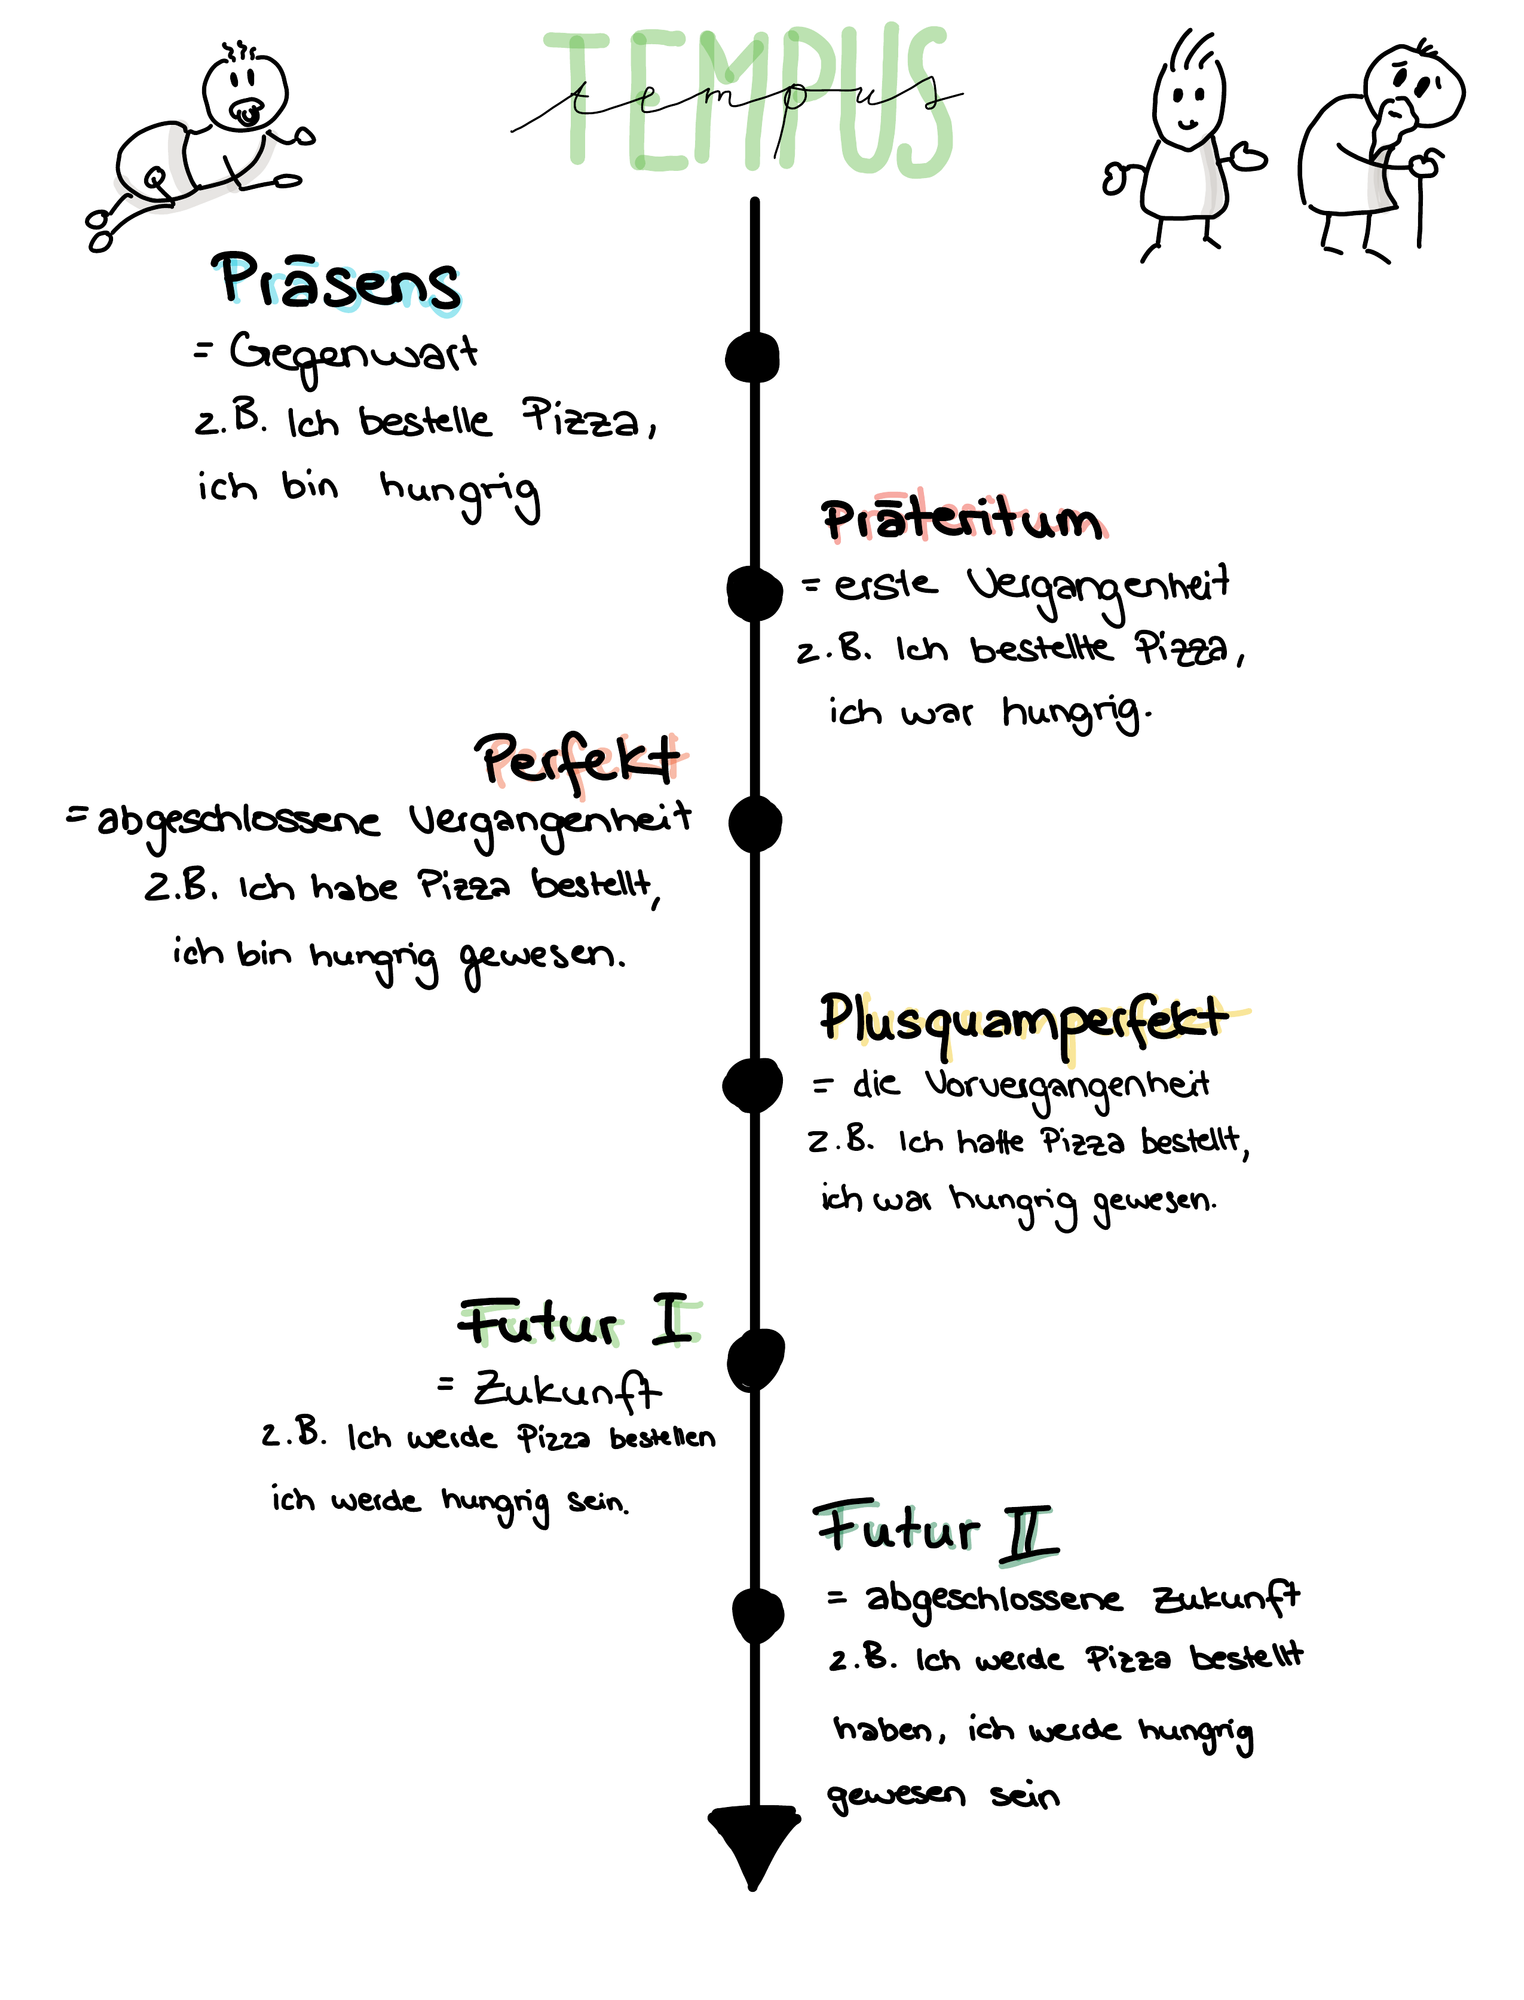 TEMPUS
tempus
Präsens
= Gegenwart
z.B. Ich bestelle Pizza,
ich bin hungrig
Präteritum
= erste Vergangenheit
z.B. Ich bestellte Pizza,
ich war hungrig.
Perfekt
= abgeschlossene Vergangenheit
z.B. Ich habe Pizza bestellt,
ich bin hungrig gewesen.
Plusquamperfekt
= die Vorvergangenheit
z.B. Ich hatte Pizza bestellt,
ich war hungrig gewesen.
Futur I
= Zukunft
z.B. Ich werde Pizza bestellen
ich werde hungrig sein.
Futur II
= abgeschlossene Zukunft
z.B. Ich werde Pizza bestellt
haben, ich werde hungrig
gewesen sein